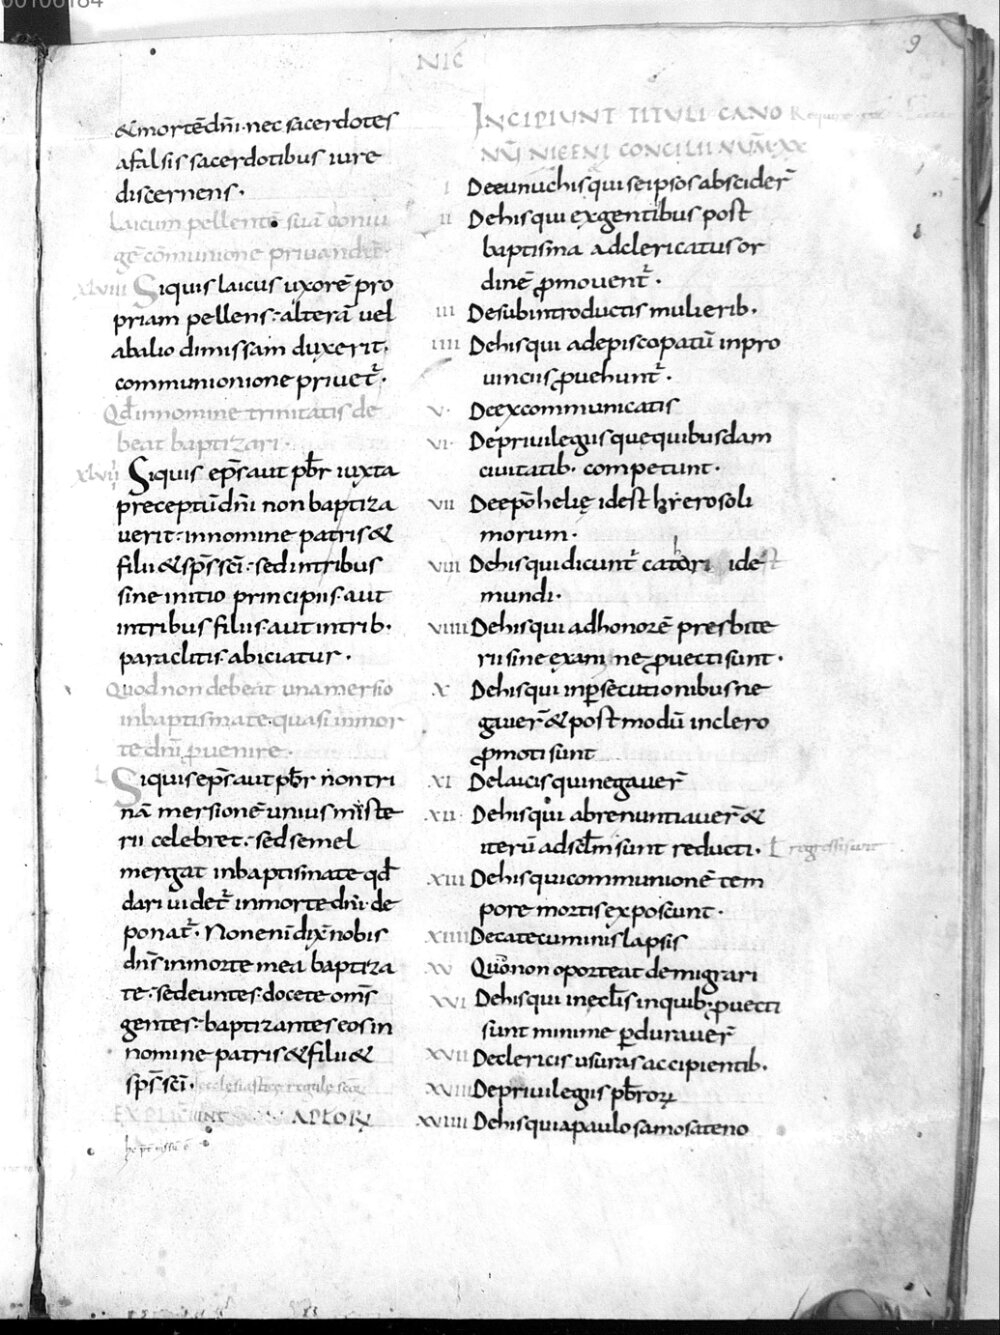 NIC
9
& morte dn̄i· nec sacerdotes
a falsis sacerdotibus iure
discernens·
Laicum pellentē suā coniu
gē cōmunione privandū·
xlviii Siquis laicus uxorē pro
priam pellens· alterā vel
ab alio dimissam duxerit·
communionione privet᷑·
Qd̄ in nomine trinitatis de
beat baptizari·
xlviiii Siquis ep̄s aut pb̄r iuxta
preceptū dn̄i non baptiza
verit· in nomine patris &
filii & sp̄s sc̄i· sed in tribus
sine initio principiis· aut
in tribus filiis· aut in trib·
paraclitis· abiciatur·
Quod non debeat una mersio
in baptismate· quasi in mor
te dn̄i ꝓvenire·
L Siquis ep̄s aut pb̄r non tri
nā mersionē unius miste
rii celebret· sed semel
mergat in baptismate qd̄
dari videt᷑ in morte dn̄i· de
ponat᷑· Non enī dix̄ nobis
dn̄s in morte mea baptiza
te· sed euntes· docete om̄s
gentes· baptizantes eos in
nomine patris & filii &
sp̄s sc̄i·
EXPLICIUNT
INCIPIUNT TITULI CANO
NŪ NICENI CONCILII NUM̄ XX
I De eunuchis qui se ipsos abscider̄
II De his qui ex gentibus post
baptisma ad clericatus or
dinē ꝓmovent᷑·
III De subintroductis mulierib·
IIII De his qui ad episcopatū in pro
vinciis ꝓvehunt᷑·
V· De excommunicatis
VI· De privilegiis que quibusdam
civitatib· competunt·
VII De ep̄o helię id est hierosoli
morum·
VIII De his qui dicunt᷑ catari id est
mundi·
VIIII De his qui ad honorē presbite
rii sine examine ꝓvecti sunt·
X De his qui in ꝑsecutionibus ne
gaver̄ & post modū in clero
ꝓmoti sunt
XI De laicis qui negaver̄
XII· De his qui abrenuntiaver̄ &
iterū ad sclm̄ sunt reducti· regressi sunt
XIII De his qui communionē tem
pore mortis exposcunt·
XIIII De catecuminis lapsis
XV Quōnon oporteat demigrari
XVI De his qui in eccl̄is in quib· ꝓvecti
sunt minime ꝑduraver̄
XVII De clericis usuras accipientib·
XVIII De privilegiis pb̄roꝝ
XVIIII De his qui a paulo samosateno